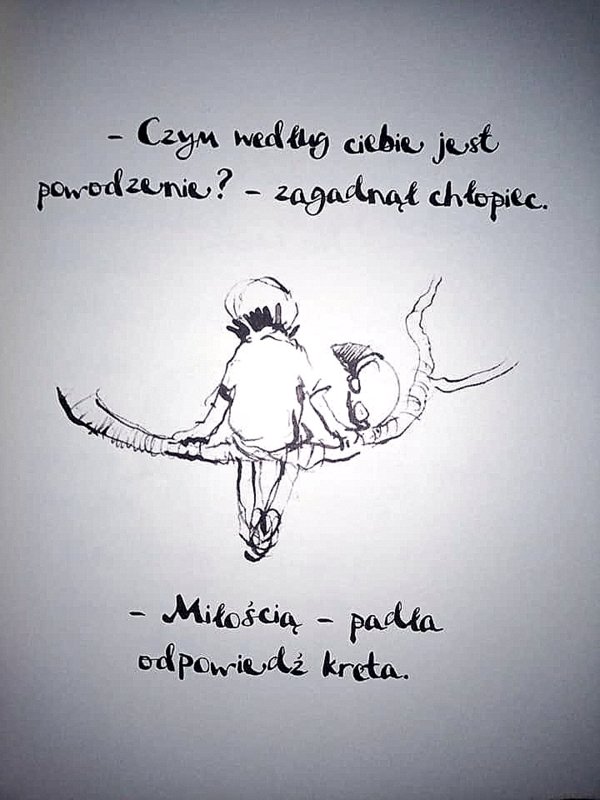 - Czym według ciebie jest
powodzenie? - zagadnął chłopiec.
- Miłością - padła
odpowiedź kreta.